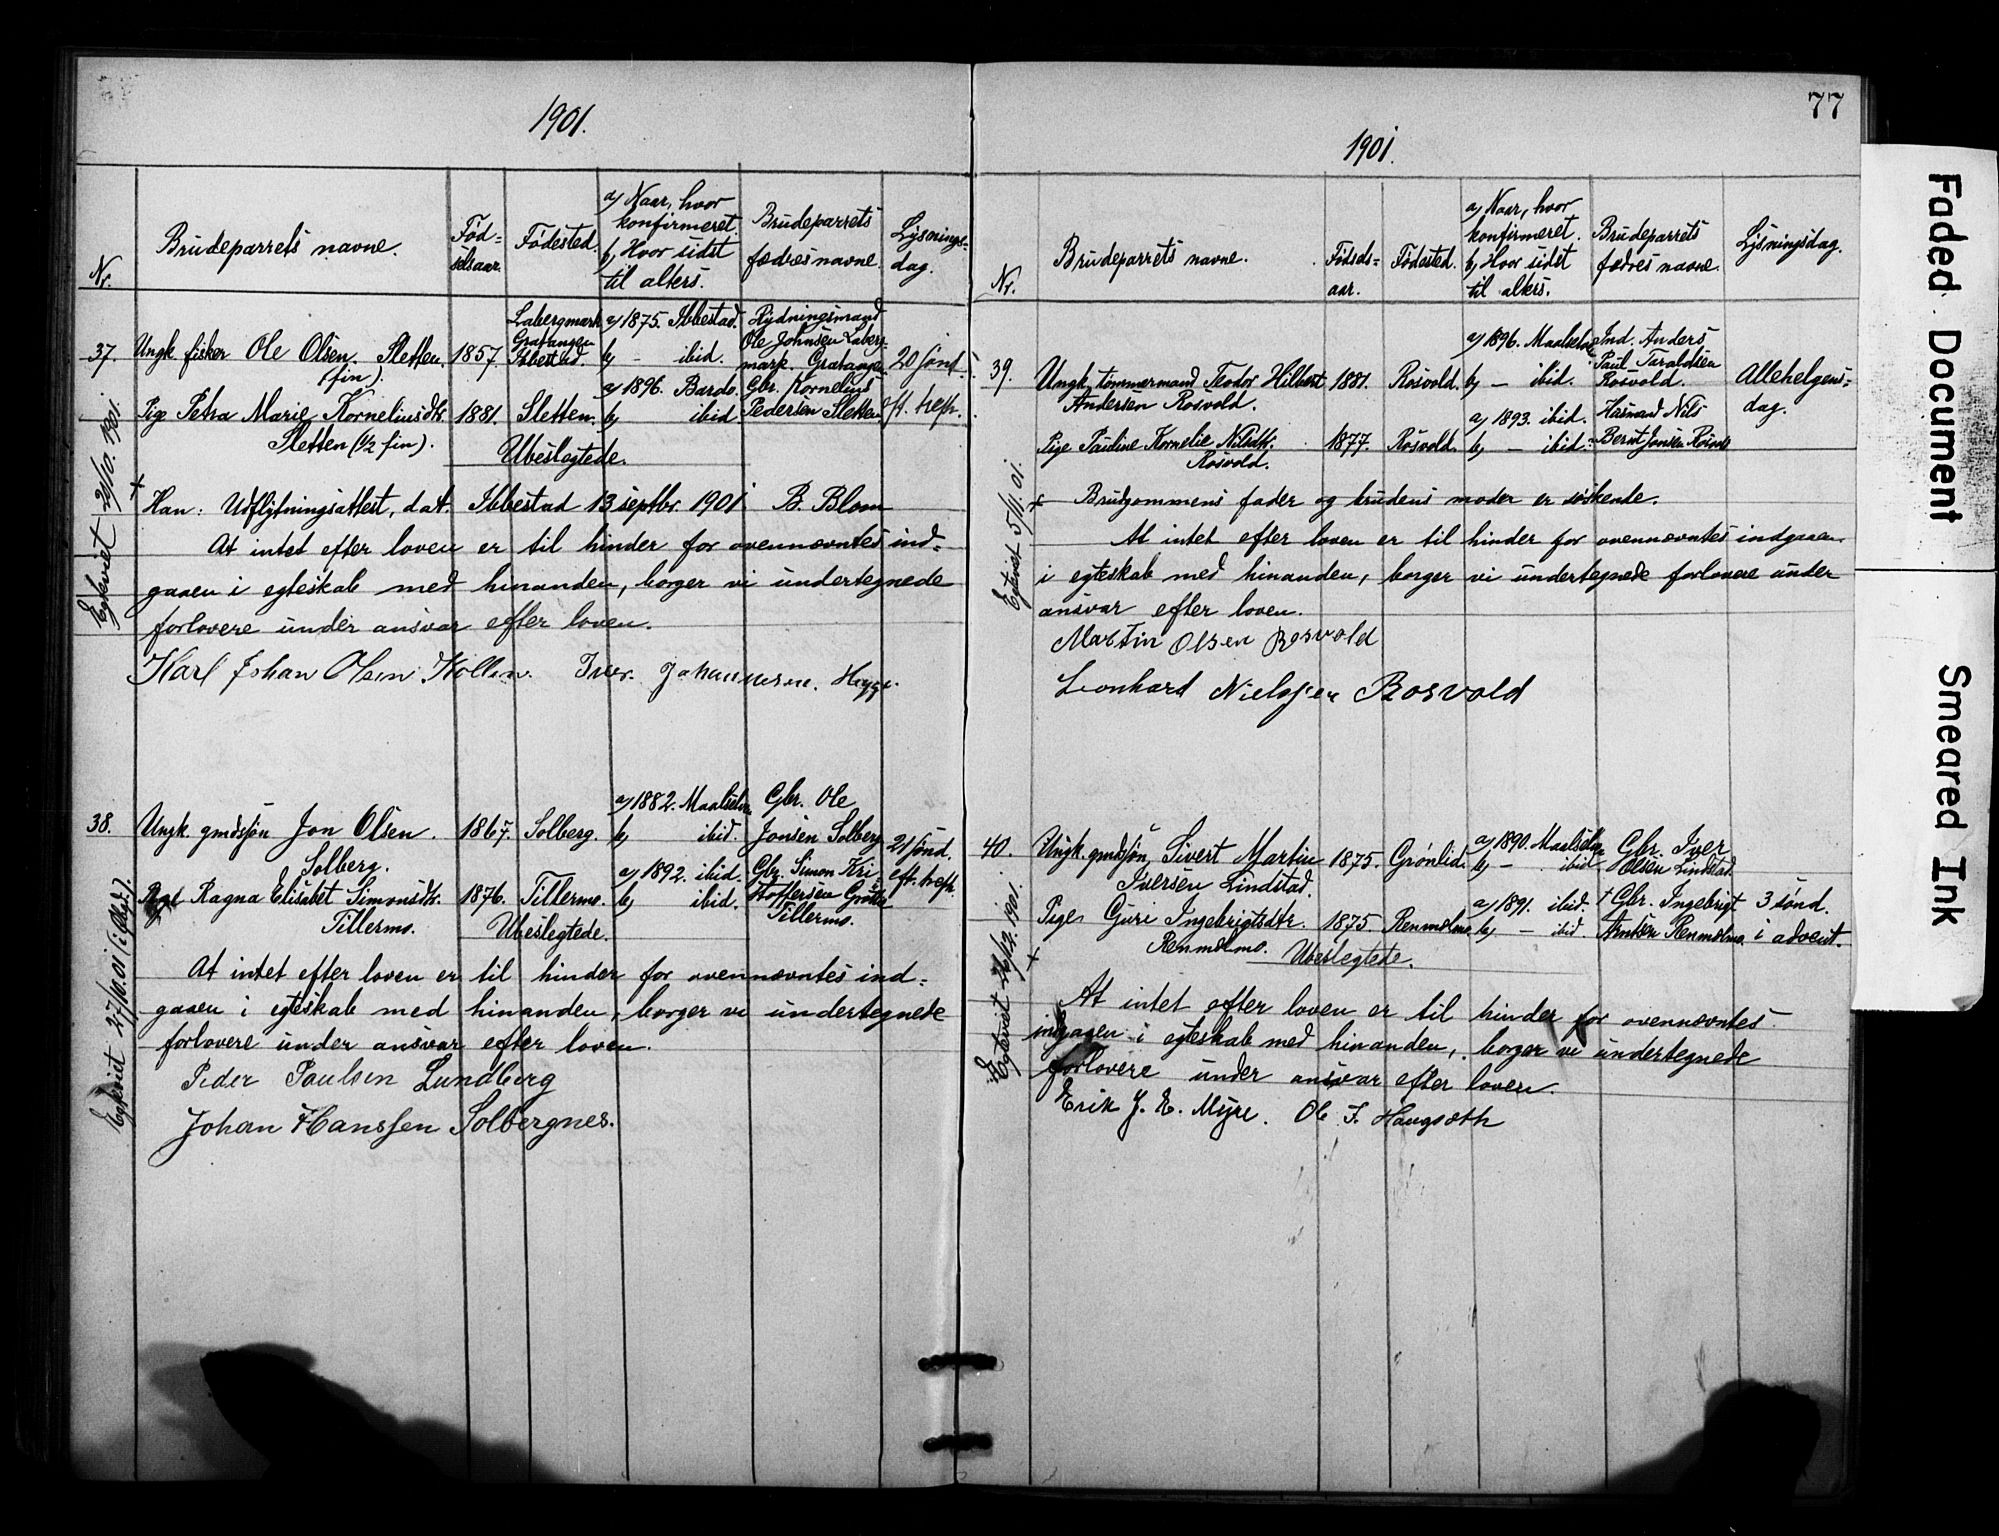 1901.
Nr.
Brudeparrets navne.
Fød=
selsaar.
Fødested.
a) Naar, hvor
konfirmeret.
b) Hvor sidst
til alters.
Brudeparrets
fædres navne.
Lysnings=
dag.
37. Ungk. fisker Ole Olsen. Sletten. (fin).
1857.
Labergmark
Gratangen
Ibbestad.
a) 1875. Ibbestad.
b) - ibid.
Rydningsmand
Ole Johnsen Laberg
mark. Gratangen
20 sønd.
Pige Petra Marie Korneliusdtr.
Sletten (1/2 fin).
1881. Sletten.
a) 1896. Bardo.
b) ibid.
Gbr. Kornelius
Pedersen Sletten
eft. trefh.
Ubeslegtede.
Egteviet 29/10. 1901.
Han: Udflytningsattest, dat. Ibbestad 13 septbr. 1901 B. Blom
At intet efter loven er til hinder for ovennævntes ind=
gaaen i egteskab med hinanden, borger vi undertegnede
forlovere under ansvar efter loven.
Karl Johan Olsen Kollen. Iver Johannesen. Hegge.
38. Ungk. gmdssøn Jon Olsen.
Solberg.
1867. Solberg.
a) 1882. Maalselv.
b) ibid.
Gbr. Ole
Jonsen Solberg
21 sønd.
eft. trefh.
Pige Ragna Elisabet Simonsdtr.
Tillermo.
1876. Tillermo.
a) 1892. ibid.
b) ibid.
Gbr. Simon Kri
stoffersen
Tillermo.
Ubeslegtede.
Egteviet 27/10. 01
At intet efter loven er til hinder for ovennævntes ind=
gaaen i egteskab med hinanden, borger vi undertegnede
forlovere under ansvar efter loven.
Peder Paulsen Lundberg
Johan Hanssen Solbergnes.
77
1901.
Nr.
Brudeparrets navne.
Fødsels=
aar.
Fødested.
a) Naar, hvor
konfirmeret.
b) Hvor sidst
til alters.
Brudeparrets
fædres navne.
Lysningsdag.
39. Ungk. tømmermand Teodor Hilbert
Andersen Rosvold.
1881. Rosvold.
a) 1896. Maalselv.
b) - ibid.
Ind. Anders
Paul Taraldsen
Rosvold.
Allehelgens=
dag.
Pige Pauline Kornelie Nilsdtr.
Rosvold.
1877. Rosvold.
a) 1893. ibid.
b) - ibid.
Husmand Nils
Bernt Jonsen Rosvold
Egteviet 5/11. 01.
Brudgommens fader og brudens moder er søskende.
At intet efter loven er til hinder for ovennævntes indgaaen
i egteskab med hinanden, borger vi undertegnede forlovere under
ansvar efter loven.
Martin Olsen Rosvold
Leonhard Nielssen Rosvold
40. Ungk. gmdssøn, Sivert Martin
Iversen Lindstad.
1875. Grønlid.
a) 1890. Maalselv.
b) - ibid
Gbr. Iver
Olsen Lindstad.
Pige Guri Ingebrigtsdtr.
Renmælmo.
1875. Renmælmo.
a) 1891. ibid.
b) - ibid.
† Gbr. Ingebrigt
Arntsen Renmælmo.
3 sønd.
i advent.
Ubeslegtede.
Egteviet 26/12. 1901.
At intet efter loven er til hinder for ovennævntes
ingaaen i egteskab med hinanden, borger vi undertegnede
forlovere under ansvar efter loven.
Erik J. E. Myre. Ole I. Haugsæth
Faded Document
Smeared Ink